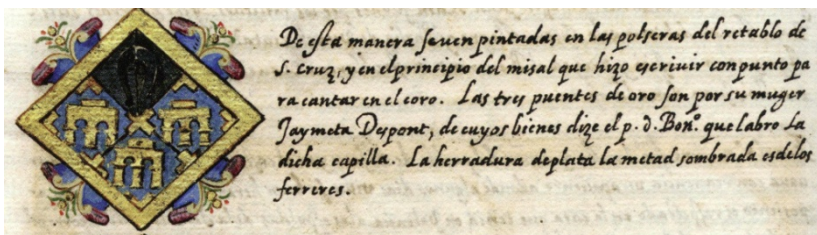 De esta manera se ven pintadas en las polseras del retablo de
S. Cruz, y en el principio del misal que hizo escrivir con punto pa
ra cantar en el coro. Las tres puentes de oro son por su muger
Jaymeta Despont, de cuyos bienes dize el p. d. Bon.º que labro la
dicha capilla. La herradura de plata la metad sombrada es de los
ferreres.